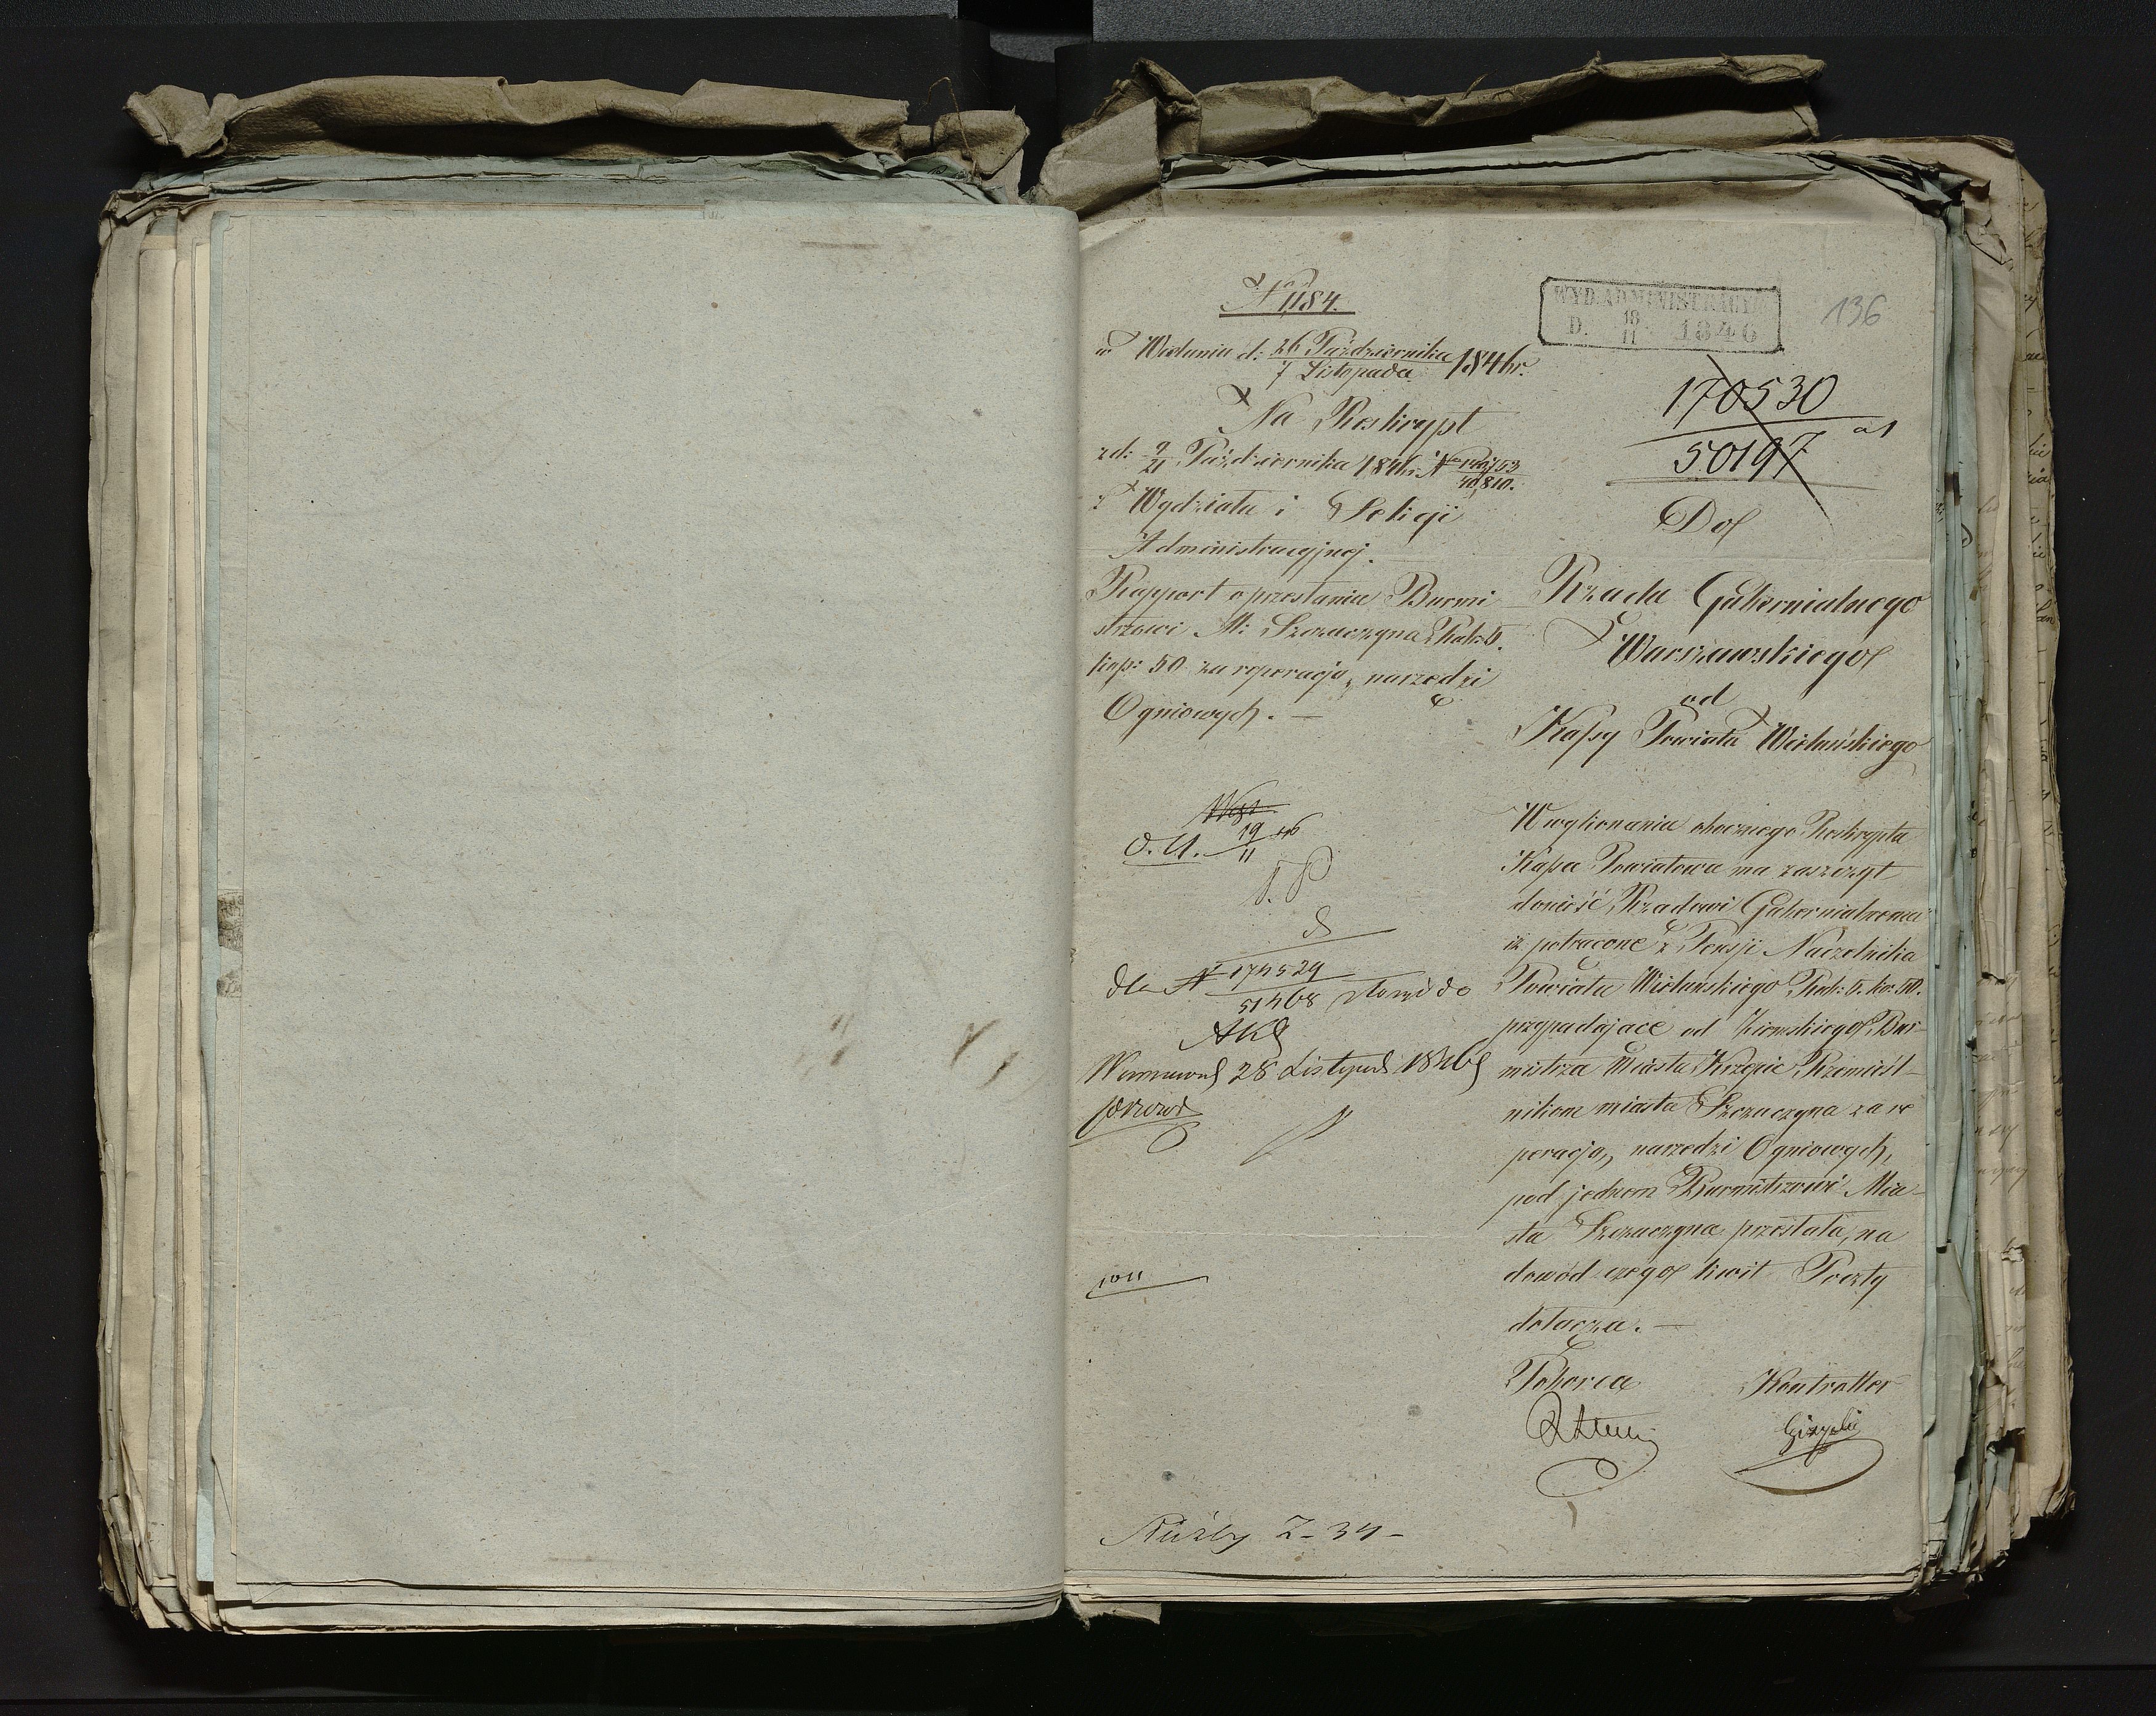 N 1184.
w Wieluniu d: 26 Października / 7 Listopada 1846 r.
Na Reskrypt
z d: 9/21 Października 1846 r. N
40,810.
z Wydziału i Sekcji
Administracyjnej.
Rapport o przesłaniu Burmi
strzowi M: Szczuczyna Rubs. 5.
kop: 50 za reperacją narzędzi
Ogniowych. —
WYD. ADMINISTRACYI
D. 18/11 1846
136
170530
50197
Do
Rządu Gubernialnego
Warszawskiego
od
Kassy Powiatu Wieluńskiego
W wykonaniu obocznego Reskryptu
Kassa Powiatowa ma zaszczyt
donieść Rządowi Gubernialnemu
iż potrącone z Pensji Naczelnika
Powiatu Wieluńskiego Rub: 5. ko: 50.
przypadające od Ziemskiego Bur-
mistrza Miasta Krzepic Rzemieśl-
nikom miasta Szczuczyna za re
peracją narzędzi Ogniowych,
pod jednem Burmistrzowi Mia-
sta Szczuczyna przesłała, na
dowód czego kwit Poczty
dołącza. —
Poborca Kontroller
19/11 46
dla N 174529
51468 złożyć do
Akt
28 Listopad 1846
Z - 34 -